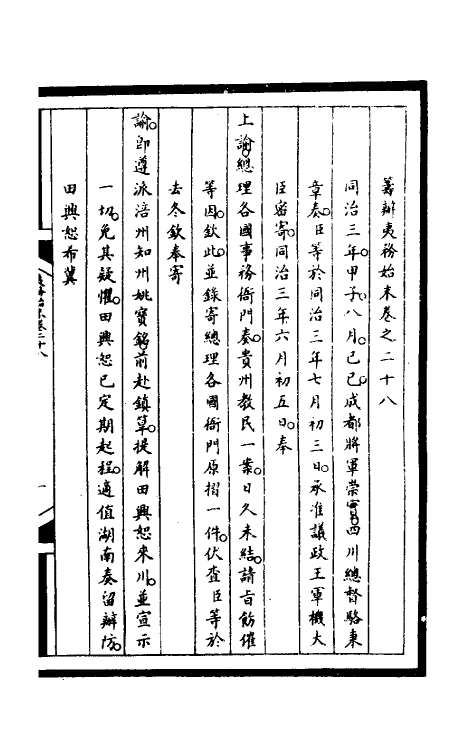 籌辦夷務始末卷之二十八
同治三年甲子八月己巳成都將軍崇實四川總督駱秉
章奏臣等於同治三年七月初三日承准議政王軍機大
臣密寄同治三年六月初五日奉
上諭總理各國事務衙門奏貴州教民一案日久未結請旨飭催
等因欽此並錄寄總理各國衙門原摺一件伏查臣等於
去冬欽奉寄
諭即遵派涪州知州姚寶銘前赴鎮筸提解田興恕來川並宣示
一切免其疑懼田興恕已定期起程適值湖南奏留辦防
田興恕希冀